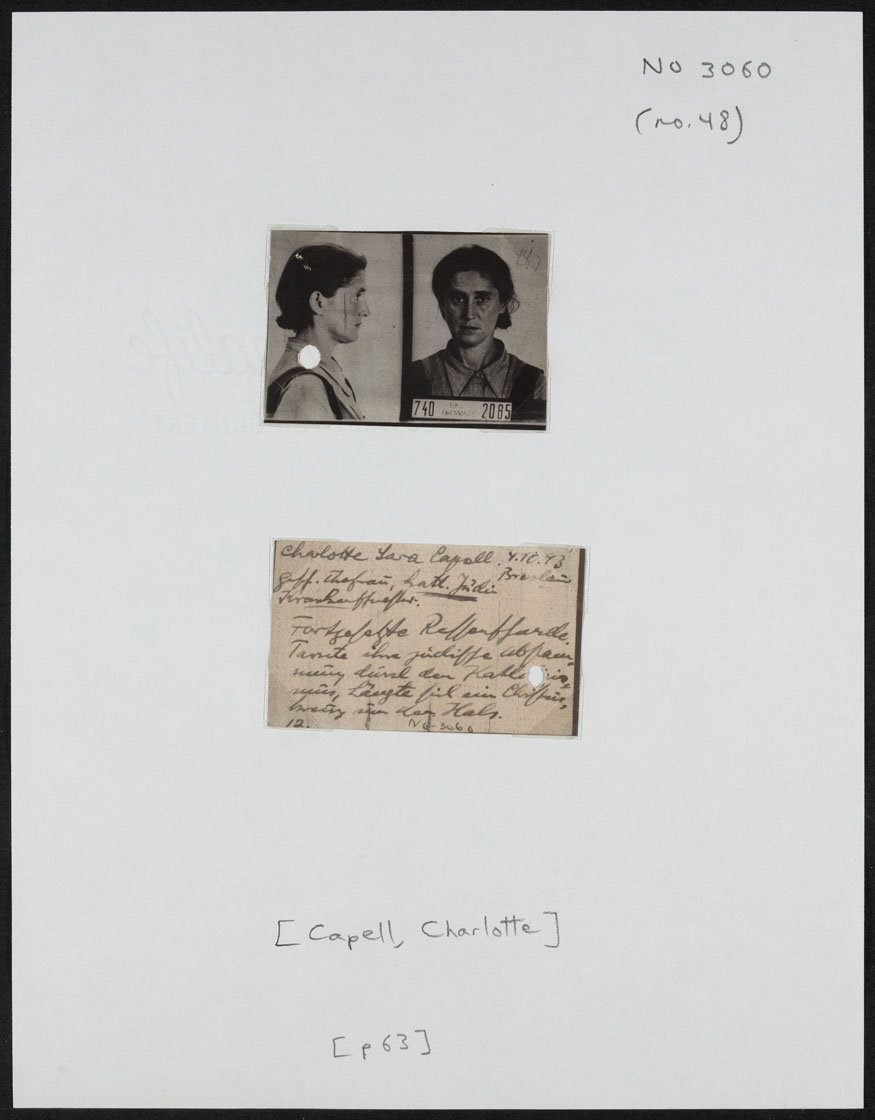 No 3060
(no. 48)
740 2085
Charlotte Sara Capell. 4.10.93
Breslau
gesch. Ehefrau, kath. Jüdin
Krankenschwester.
Fortgesetzte Rassenschande.
Tarnte ihre jüdische Abstam-
mung durch den Katholizis-
mus, hängte sich ein Christus-
kreuz um den Hals.
12. No-3060
[Capell, Charlotte]
[p 63]